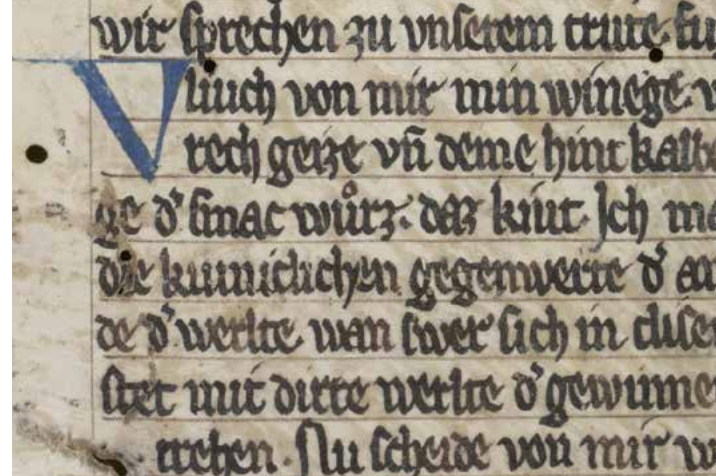 wir sprechen zu vnserem trute. su
Vliuch von mir min winege. v
rech geize vn̄ deme hint kalbe
ge d' smac wůrz. daz kiut. Ich ma
die kuniclichen gegenwerte d' an
de d' werlte. wan swer sich in dise
stet mit dirre werlte d' gewinne
trehen. Nu scheide von mir w